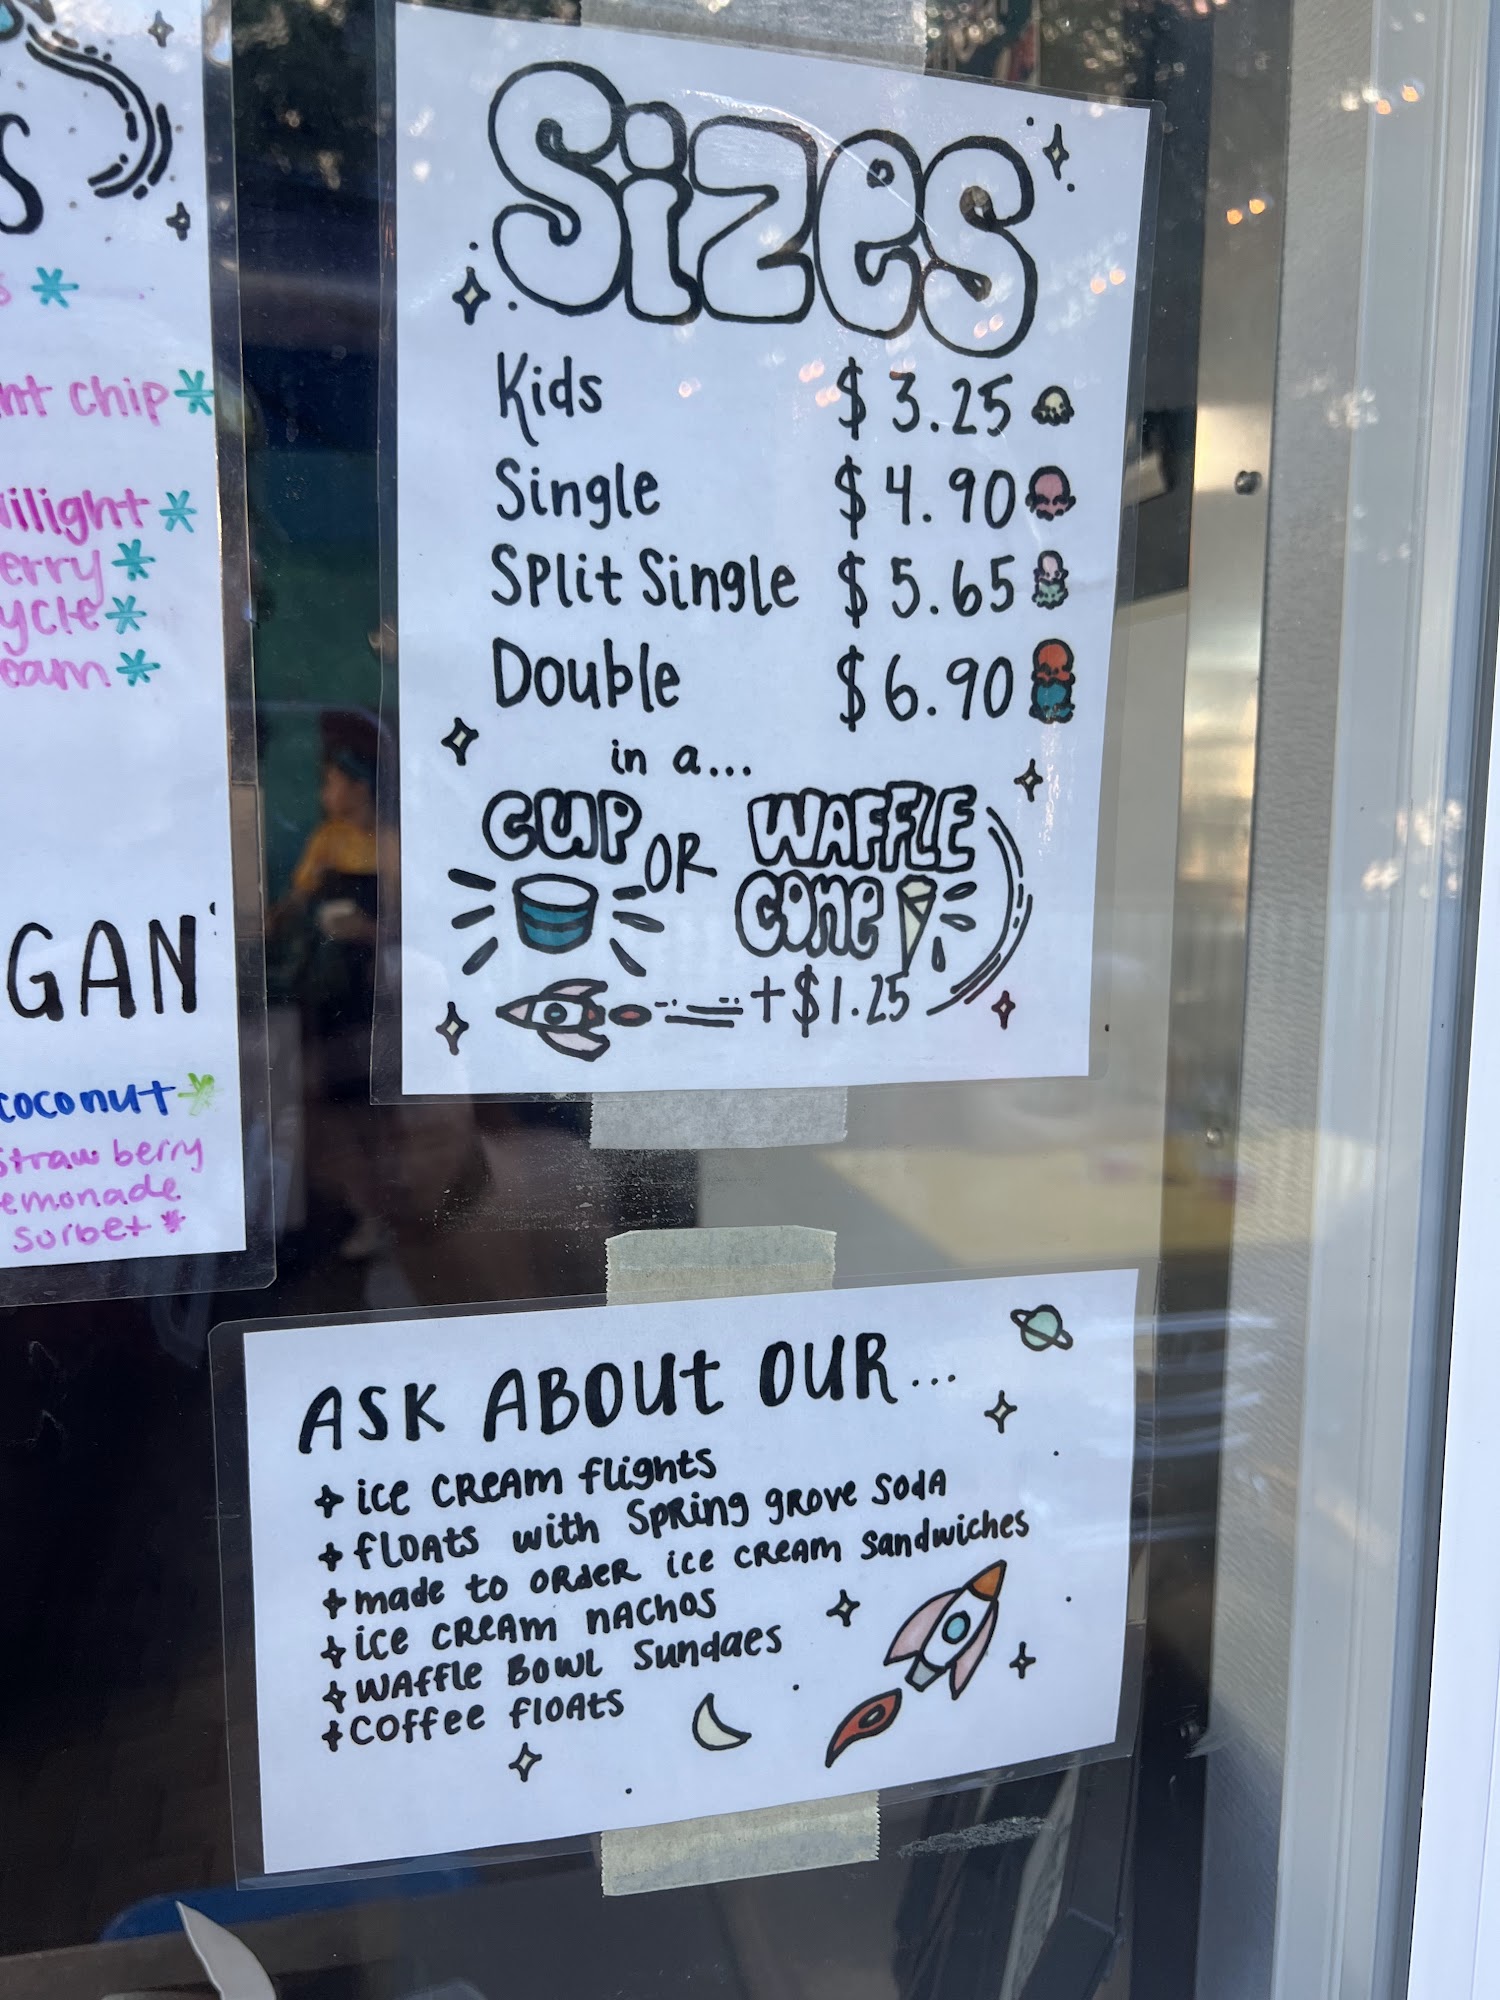 chip*
*
*
*
*
coconut*
strawberry
sorbet*
Sizes
Kids $3.25
Single $4.90
Split Single $5.65
Double $6.90
in a...
CUP OR WAFFLE
CONE
+$1.25
ASK ABOUT OUR...
+ ice cream flights
+ floats with Spring grove soda
+ made to order ice cream sandwiches
+ ice cream nachos
+ waffle bowl sundaes
+ coffee floats